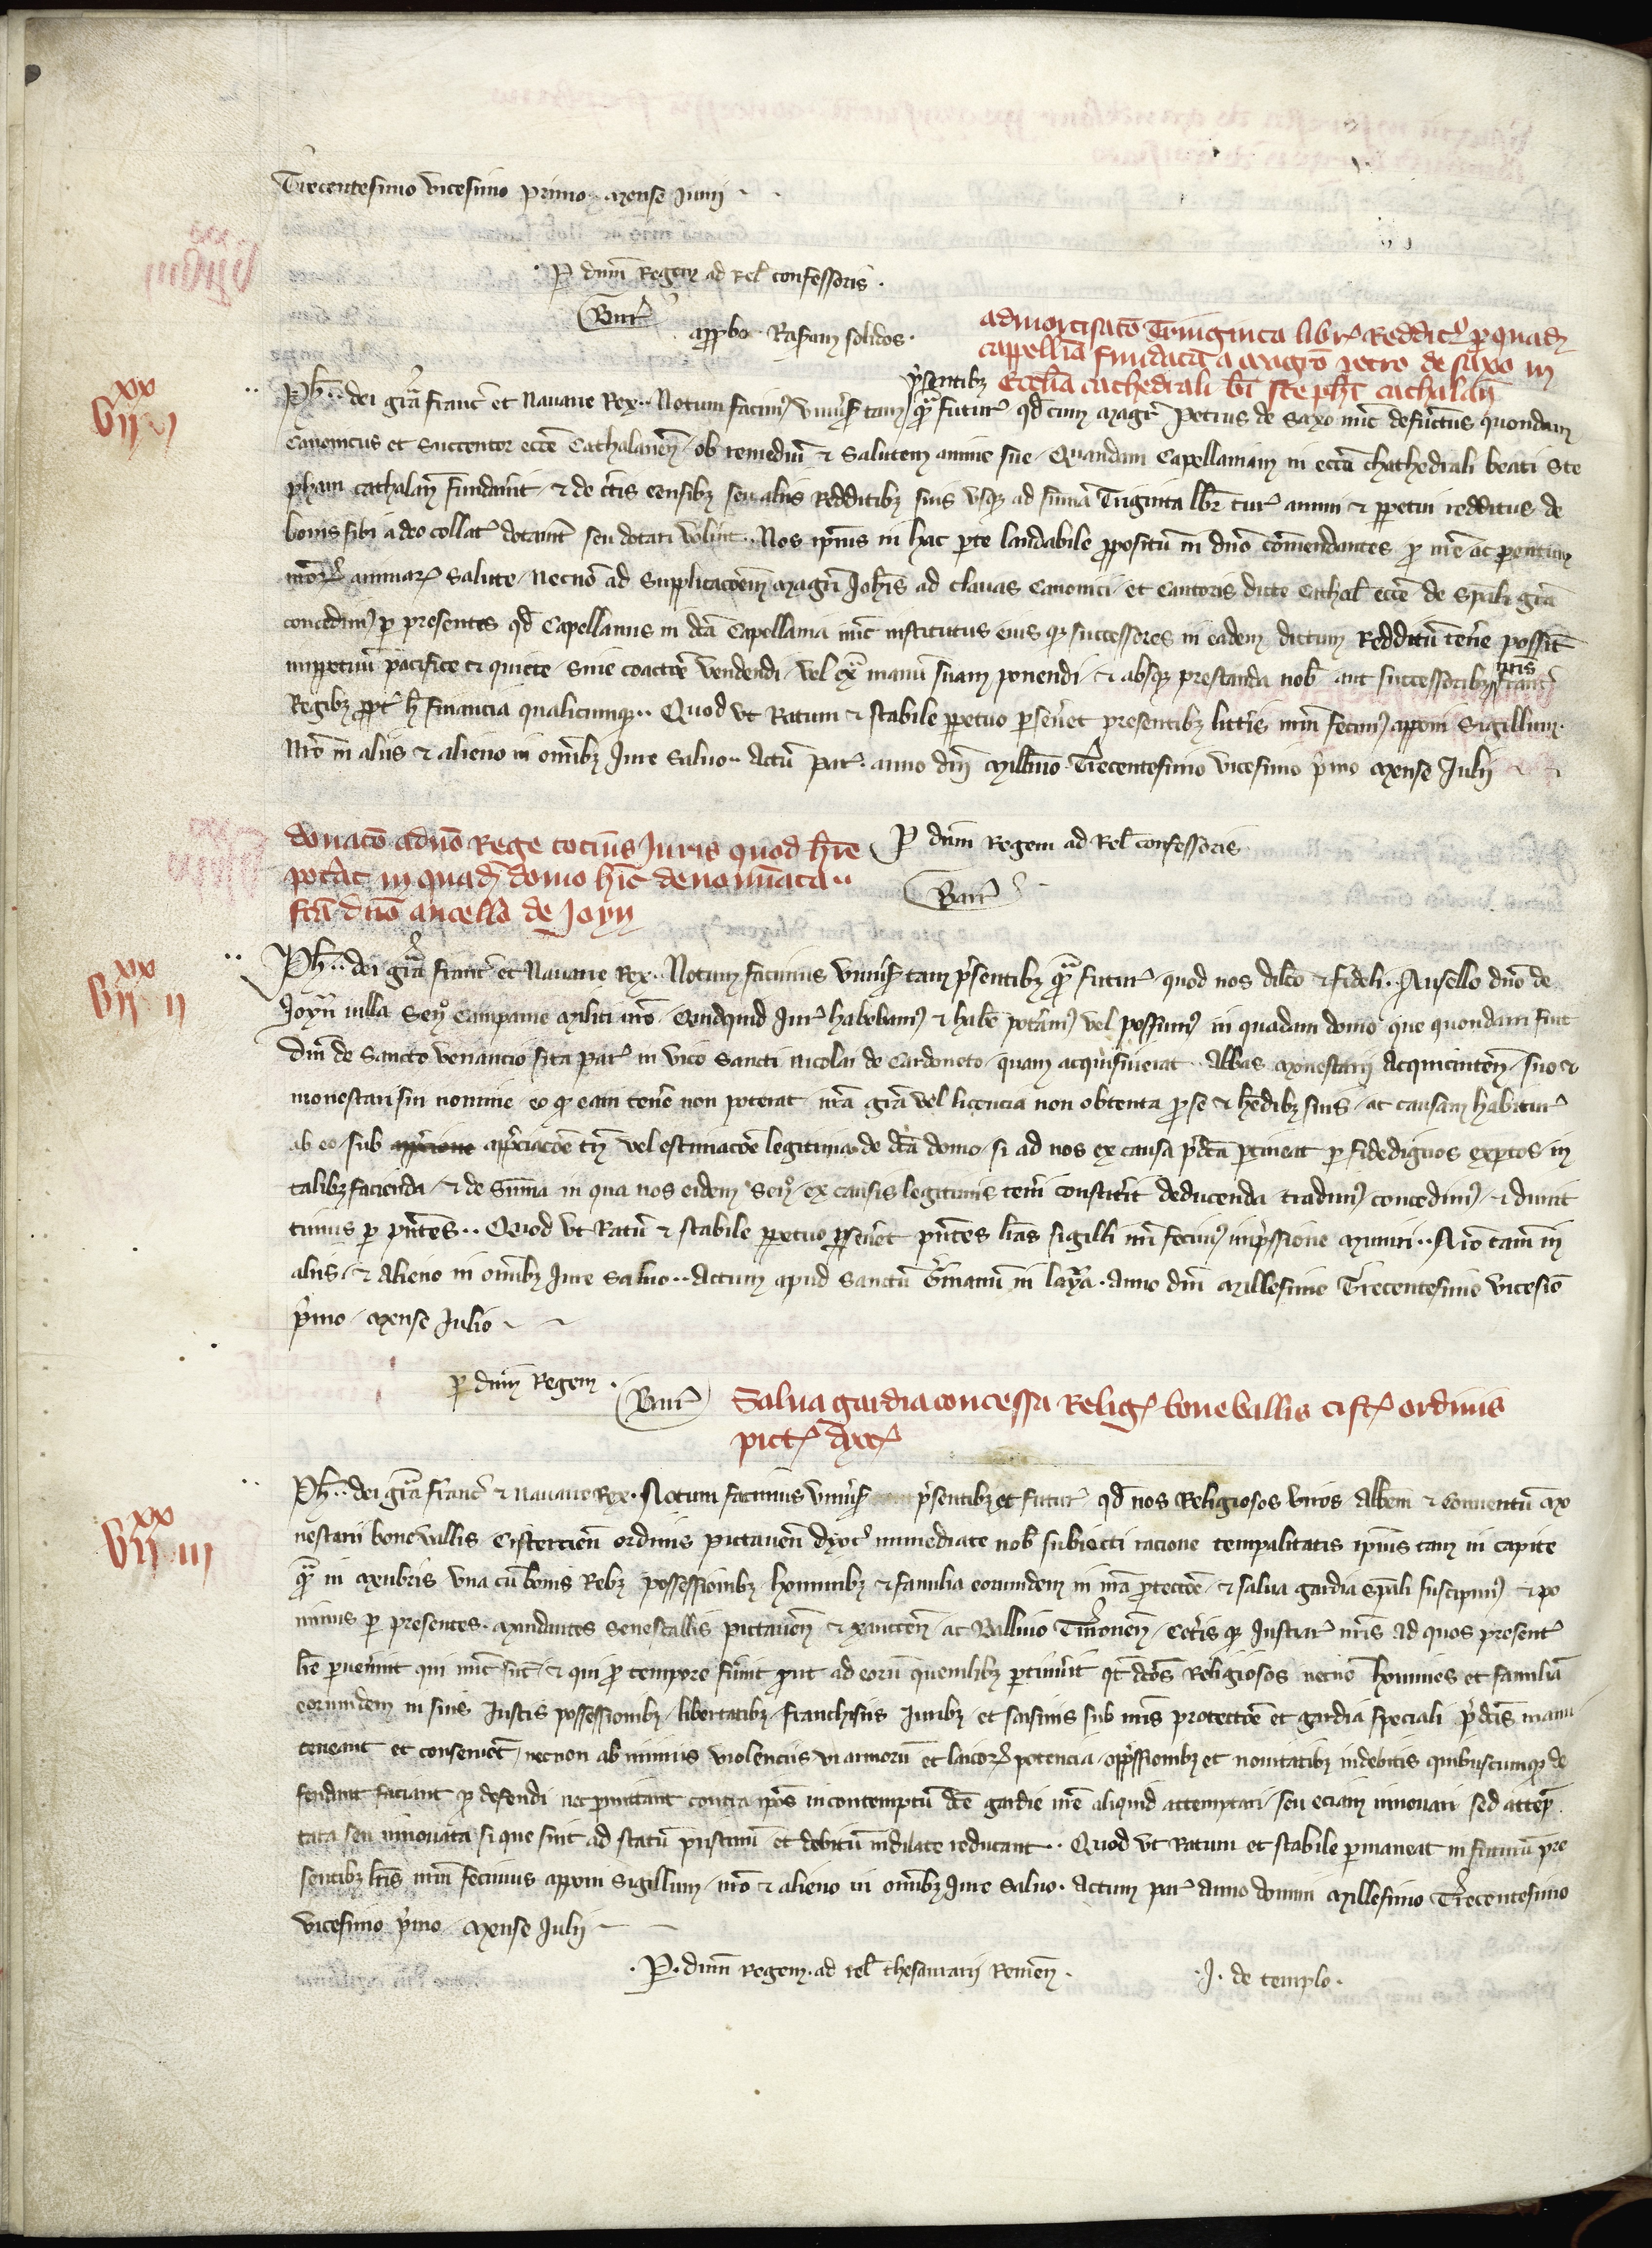 Trecentesimo vicesimo primo mense Junij
P dnm Regem ad Rel confessoris
Barr
approbo Rasuram solidos
admortisatio Triginta libr Reddit p quadam
cappellia fundata a magro petro de saxo in
ecclia cathedrali bti stephi cathalan
vii xx i
Ph dei gra franc et Nauarre Rex Notum facimus vniuersis tam psentibz qm futur qd cum magr Petrus de Saxo nuc defunctus quondam
Canonicus et Succentor ecce Cathalanen ob remediu et Salutem anime sue Quandam Capellaniam in ecca Chathedrali beati Ste
phani cathalan fundauit et de certis censibz seu aliis Redditibz suis vsqz ad summa Triginta libr tur annui et ppetui redditus de
bonis sibi a deo collat dotauit seu dotari voluit Nos ipius in hac pte laudabile ppositu in dno comendantes p nre ac parentum
nror animar salute necno ad Supplicacoem magri Johis ad clauas Canonici et Cantoris dicte Cathal ecce de spali gra
concedimus p presentes qd Capellanus in dca Capellania nuc institutus eius qz successores in eadem dictum Redditu tenere possint
imppetuu pacifice et quiete sine coactoe vendendi vel ext manu suam ponendi et absqz prestanda nob aut successoribz nris franc
Regibz ppt h financia qualicumqz Quod vt Ratum et stabile ppetuo pseueret presentibz litteris nrm fecimus apponi Sigillum
Nro in aliis et alieno in omibz Jure saluo Actu par anno dni millimo Trecentesimo vicesimo pmo mense Julij
donatio a dno Rege totius Juris quod here
poterat in quada domo hic denominata
fca dno ancello de Joyn
P dnm Regem ad Rel confessoris
Barr
vii xx ii
Ph dei gra franc et Nauarre Rex Notum facimus vniuersis tam psentibz qm futur quod nos dilco et fideli Ansello dno de
Joynuilla Sen Campanie militi nro Quidquid Jur habebamus et habe poteramus vel possumus in quadam domo que quondam fuit
Dni de Sancto venancio sita par in vico Sancti Nicolai de Cardoneto quam acquisiuerat Abbas monesterij Acquicinten suo et
monesterii sui nomine eo qz eam tenere non poterat nra gra vel licencia non obtenta p se et hedibz suis ac causam habitur
ab eo sub apprciacoe tn vel estimacoe legitima de dca domo si ad nos ex causa pdca ptineat p fidedignos exptos in
talibz facienda et de Summa in qua nos eidem Sen ex causis legitimis teneri constiterit deducenda tradimus concedimus et dimit
timus p pntes Quod vt Ratu et stabile ppetuo pseueret pntes lras sigilli nri fecimus impressione muniri Nro tam in
aliis et alieno in omibz Jure saluo Actum apud Sanctu Germanu in laya anno dni Millesimo Trecentesimo vicesio
pmo mense Julio
p dnm Regem
Barr
Salua gardia concessa Relig boneuallis cist ordinis
pict dyoc
vii xx iii
Ph dei gra franc et nauarre Rex Notum facimus vniuersis psentibz et futur qd nos Religiosos viros Abbem et Conuentu mo
nesterii boneuallis Cistercien ordinis pictauen dyoc immediate nob subiecti racione tempalitatis ipius tam in capite
qm in menbris vna cu bonis Rebz possessionibz hominibz et familia eorumdem in nra ptectoe et salua gardia spali suscipimus et po
nimus p presentes mandantes Senescallis pictauen et xanctoen ac Balliuo Turonen Ceteris qz Justic nris ad quos present
lre puenerint qui nuc sut et qui p tempore fuerint put ad eoru quemlibz ptinuerit qt dcos Religiosos necno homines et familia
eorumdem in suis Justis possessionibz libertatibz franchisiis Juribz et saisinis sub nris protectoe et gardia speciali pdcis manu
teneant et conseruent necnon ab iniuriis violenciis vi armoru et laicor potencia oppssionibz et nouitatibz indebitis quibuscumqz de
fendant faciant p defendi nec pmittant contra ipos in contemptu dce gardie nre aliquid attemptari seu eciam innouari sed attep
tata seu innouata si que sint ad statu pristinu et debitu indilate reducant Quod vt Ratum et stabile pmaneat in futuru pre
sentibz lris nrm fecimus apponi Sigillum nro et alieno in omibz Jure saluo Actum par anno domini Millesimo Trecentesimo
vicesimo pmo mense Julij
P dnm Regem ad rel thesaurarij Remen
J de templo